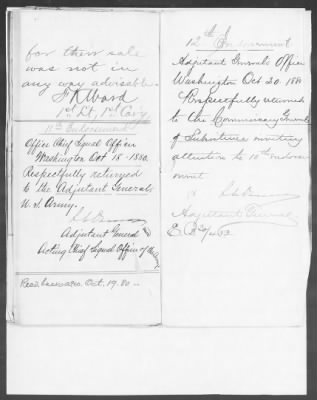 for their sale
was not in
any way advisable.
F. K. Ward
1st Lt, 1st Cav'y
11th Endorsement
Office Chief Signal Officer
Washington Oct 18 - 1880.
Respectfully returned
to the Adjutant General
U. S. Army.
Adjutant General
Acting Chief Signal Officer of the Army
Oct. 19. 80.
12th Endorsement
Adjutant General's Office
Washington Oct 20 188
Respectfully returned
to the Commissary General
of Subsistence inviting
attention to 10th endorse
ment
Adjutant General